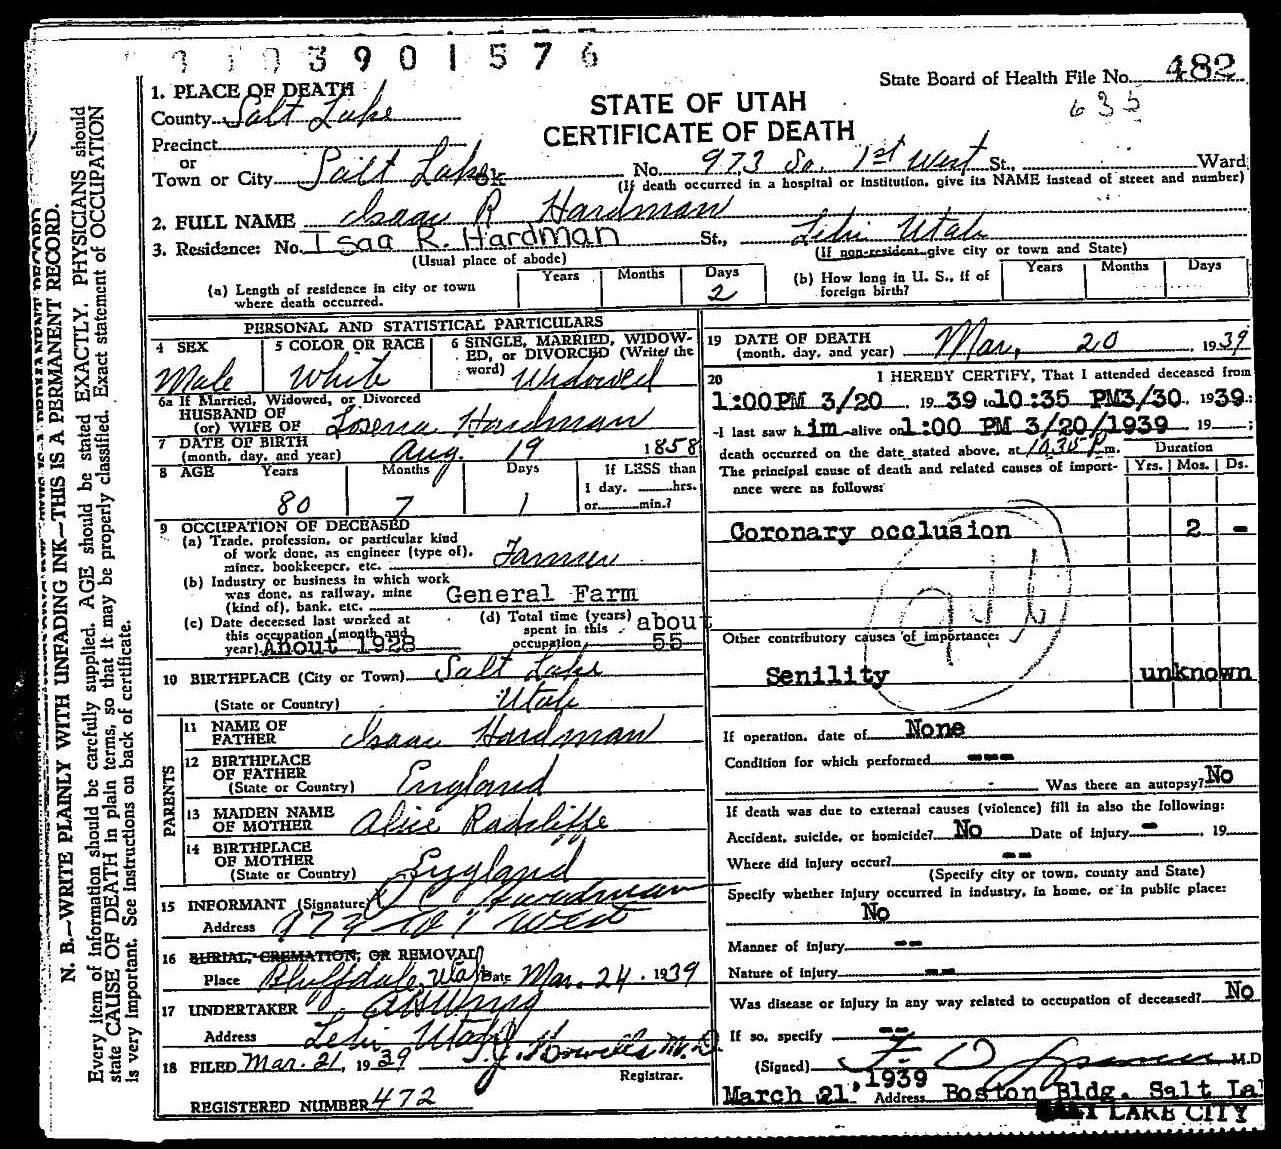 3901576
State Board of Health File No. 482
635
1. PLACE OF DEATH
STATE OF UTAH
CERTIFICATE OF DEATH
County Salt Lake
Precinct
or
Town or City Salt Lake ok No. 973 So. 1st West St., Ward
(If death occurred in a hospital or institution, give its NAME instead of street and number)
2. FULL NAME Isaac R Hardman
3. Residence: No. Isaa R. Hardman St., Lehi Utah
(Usual place of abode) (If non-resident give city or town and State)
(a) Length of residence in city or town where death occurred. Years Months Days 2
(b) How long in U. S., if of foreign birth? Years Months Days
PERSONAL AND STATISTICAL PARTICULARS
4 SEX Male
5 COLOR OR RACE White
6 SINGLE, MARRIED, WIDOW-
ED, or DIVORCED (Write the
word) Widowed
6a If Married, Widowed, or Divorced
HUSBAND OF
(or) WIFE OF Hardman
7 DATE OF BIRTH
(month, day, and year) Aug. 19 1858
8 AGE Years Months Days If LESS than
1 day, hrs.
80 7 1 or min.?
9 OCCUPATION OF DECEASED
(a) Trade, profession, or particular kind
of work done, as engineer (type of),
miner, bookkeeper, etc. Farmer
(b) Industry or business in which work
was done, as railway, mine
(kind of), bank, etc. General Farm
(c) Date deceased last worked at
this occupation (month and
year) Anout 1928
(d) Total time (years)
spent in this
occupation about 55
10 BIRTHPLACE (City or Town) Salt Lake
(State or Country) Utah
PARENTS
11 NAME OF
FATHER Isaac Hardman
12 BIRTHPLACE
OF FATHER
(State or Country) England
13 MAIDEN NAME
OF MOTHER Alice Radcliffe
14 BIRTHPLACE
OF MOTHER
(State or Country) England
15 INFORMANT (Signature) Hardman
Address
16 BURIAL, CREMATION, OR REMOVAL
Place Bluffdale, Utah Date Mar. 24 1939
17 UNDERTAKER
Address Lehi Utah
18 FILED Mar. 21, 1939 M.D.
Registrar.
REGISTERED NUMBER 472
19 DATE OF DEATH
(month, day, and year) Mar. 20 1939
20 I HEREBY CERTIFY, That I attended deceased from
1:00PM 3/20 1939 to 10:35 PM3/30, 1939:
I last saw him alive on 1:00 PM 3/20/1939 19 ;
death occurred on the date stated above, at 10:35 P m. Duration
The principal cause of death and related causes of import-
ance were as follows: Yrs. Mos. Ds.
Coronary occlusion 2 -
Other contributory causes of importance:
Senility unknown
If operation, date of None
Condition for which performed ---
Was there an autopsy? No
If death was due to external causes (violence) fill in also the following:
Accident, suicide, or homicide? No Date of injury - , 19
Where did injury occur? --
(Specify city or town, county and State)
Specify whether injury occurred in industry, in home, or in public place:
No
Manner of injury --
Nature of injury --
Was disease or injury in any way related to occupation of deceased? No
If so, specify --
(Signed) M.D
March 21, 1939 Address Boston Bldg. Salt La
SALT LAKE CITY
N. B.—WRITE PLAINLY WITH UNFADING INK—THIS IS A PERMANENT RECORD.
Every item of information should be carefully supplied. AGE should be stated EXACTLY. PHYSICIANS should
state CAUSE OF DEATH in plain terms, so that it may be properly classified. Exact statement of OCCUPATION
is very important. See instructions on back of certificate.